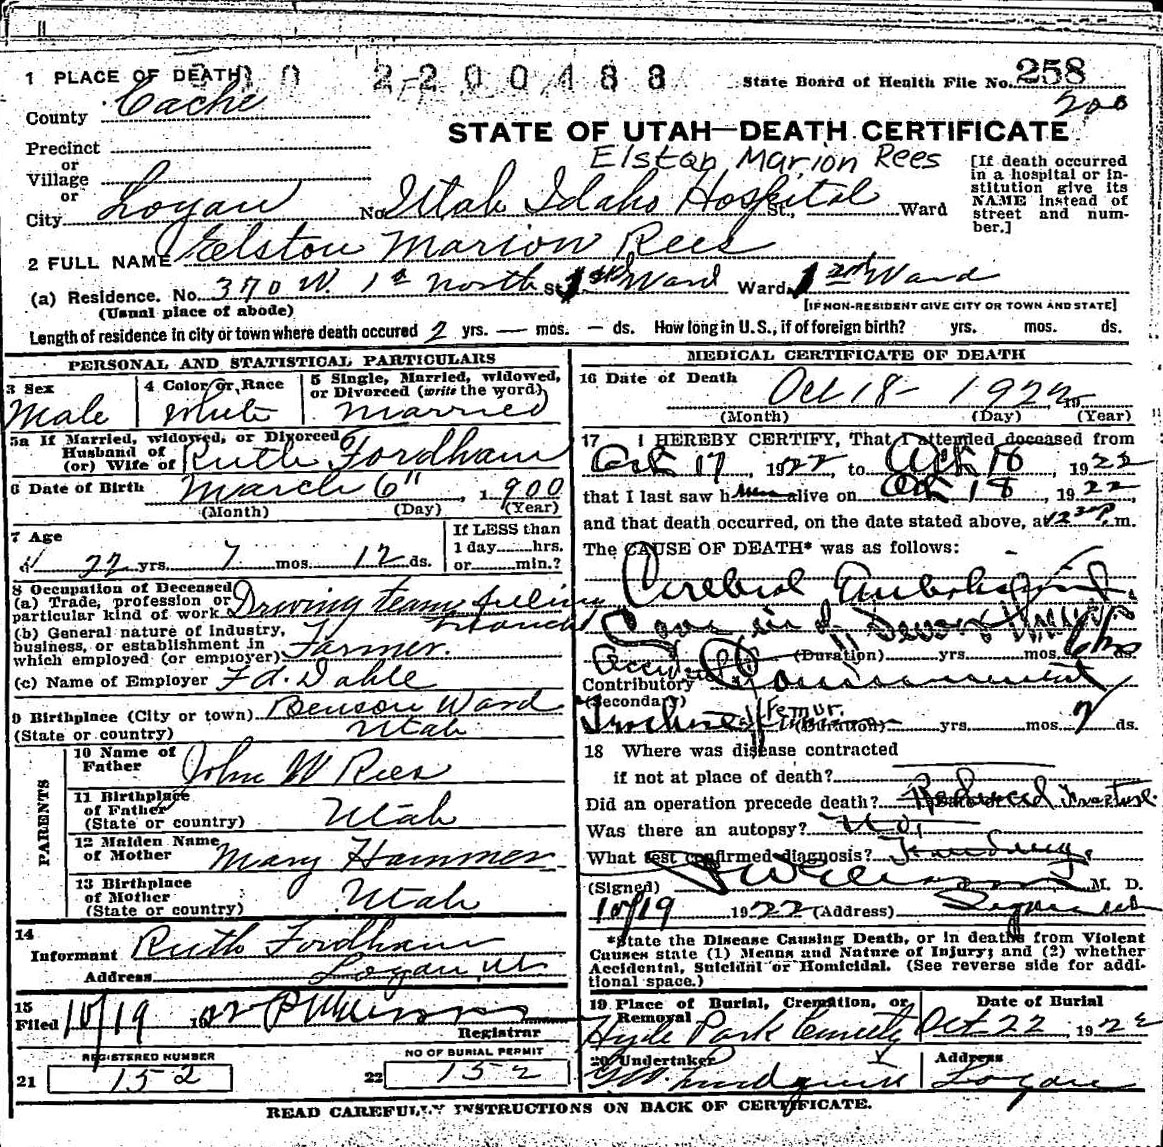 1 PLACE OF DEATH 2200488 State Board of Health File No. 258
County Cache 200
STATE OF UTAH—DEATH CERTIFICATE
Precinct
or
Village
or
City Logan No. Utah Idaho Hospital St., Ward
Elston Marion Rees
[If death occurred in a hospital or institution give its NAME instead of street and number.]
2 FULL NAME Elston Marion Rees
(a) Residence. No. 370 W. 1st North St. Ward Ward, 2nd Ward
(Usual place of abode) [IF NON-RESIDENT GIVE CITY OR TOWN AND STATE]
Length of residence in city or town where death occured 2 yrs. — mos. – ds. How long in U.S., if of foreign birth? yrs. mos. ds.
PERSONAL AND STATISTICAL PARTICULARS
3 Sex Male
4 Color or Race White
5 Single, Married, widowed, or Divorced (write the word) Married
5a If Married, widowed, or Divorced
Husband of
(or) Wife of Ruth Fordham
6 Date of Birth March 6", 1900
(Month) (Day) (Year)
7 Age 22 yrs. 7 mos. 12 ds.
If LESS than
1 day hrs.
or min.?
8 Occupation of Deceased
(a) Trade, profession or
particular kind of work Driving team
(b) General nature of industry,
business, or establishment in
which employed (or employer) Farmer.
(c) Name of Employer
9 Birthplace (City or town) Benson Ward
(State or country) Utah
PARENTS
10 Name of
Father John W Rees
11 Birthplace
of Father
(State or country) Utah
12 Maiden Name
of Mother Mary Hammer
13 Birthplace
of Mother
(State or country) Utah
14
Informant Ruth Fordham
Address Logan, Ut
15
Filed 10/19
Registrar
REGISTERED NUMBER
21 152
NO OF BURIAL PERMIT
22 152
MEDICAL CERTIFICATE OF DEATH
16 Date of Death Oct 18- 1922
(Month) (Day) (Year)
17 I HEREBY CERTIFY, That I attended deceased from
Oct 17, 1922 to Oct 18, 1922
that I last saw him alive on Oct 18, 1922,
and that death occurred, on the date stated above, at 12 m.
The CAUSE OF DEATH* was as follows:
Cerebral
(Duration) yrs. mos. ds.
Contributory
(Secondary)
Femur.
(Duration) yrs. mos. ds.
18 Where was disease contracted
if not at place of death?
Did an operation precede death? Reduced fracture.
Was there an autopsy? No.
What test confirmed diagnosis?
(Signed) M. D.
10/19 1922 (Address) Logan Utah
*State the Disease Causing Death, or in deaths from Violent
Causes state (1) Means and Nature of Injury; and (2) whether
Accidental, Suicidal or Homicidal. (See reverse side for additional space.)
19 Place of Burial, Cremation, or
Removal
Hyde Park Cemetery
Date of Burial
Oct 22 1922
20 Undertaker
Address
Logan
READ CAREFULLY INSTRUCTIONS ON BACK OF CERTIFICATE.